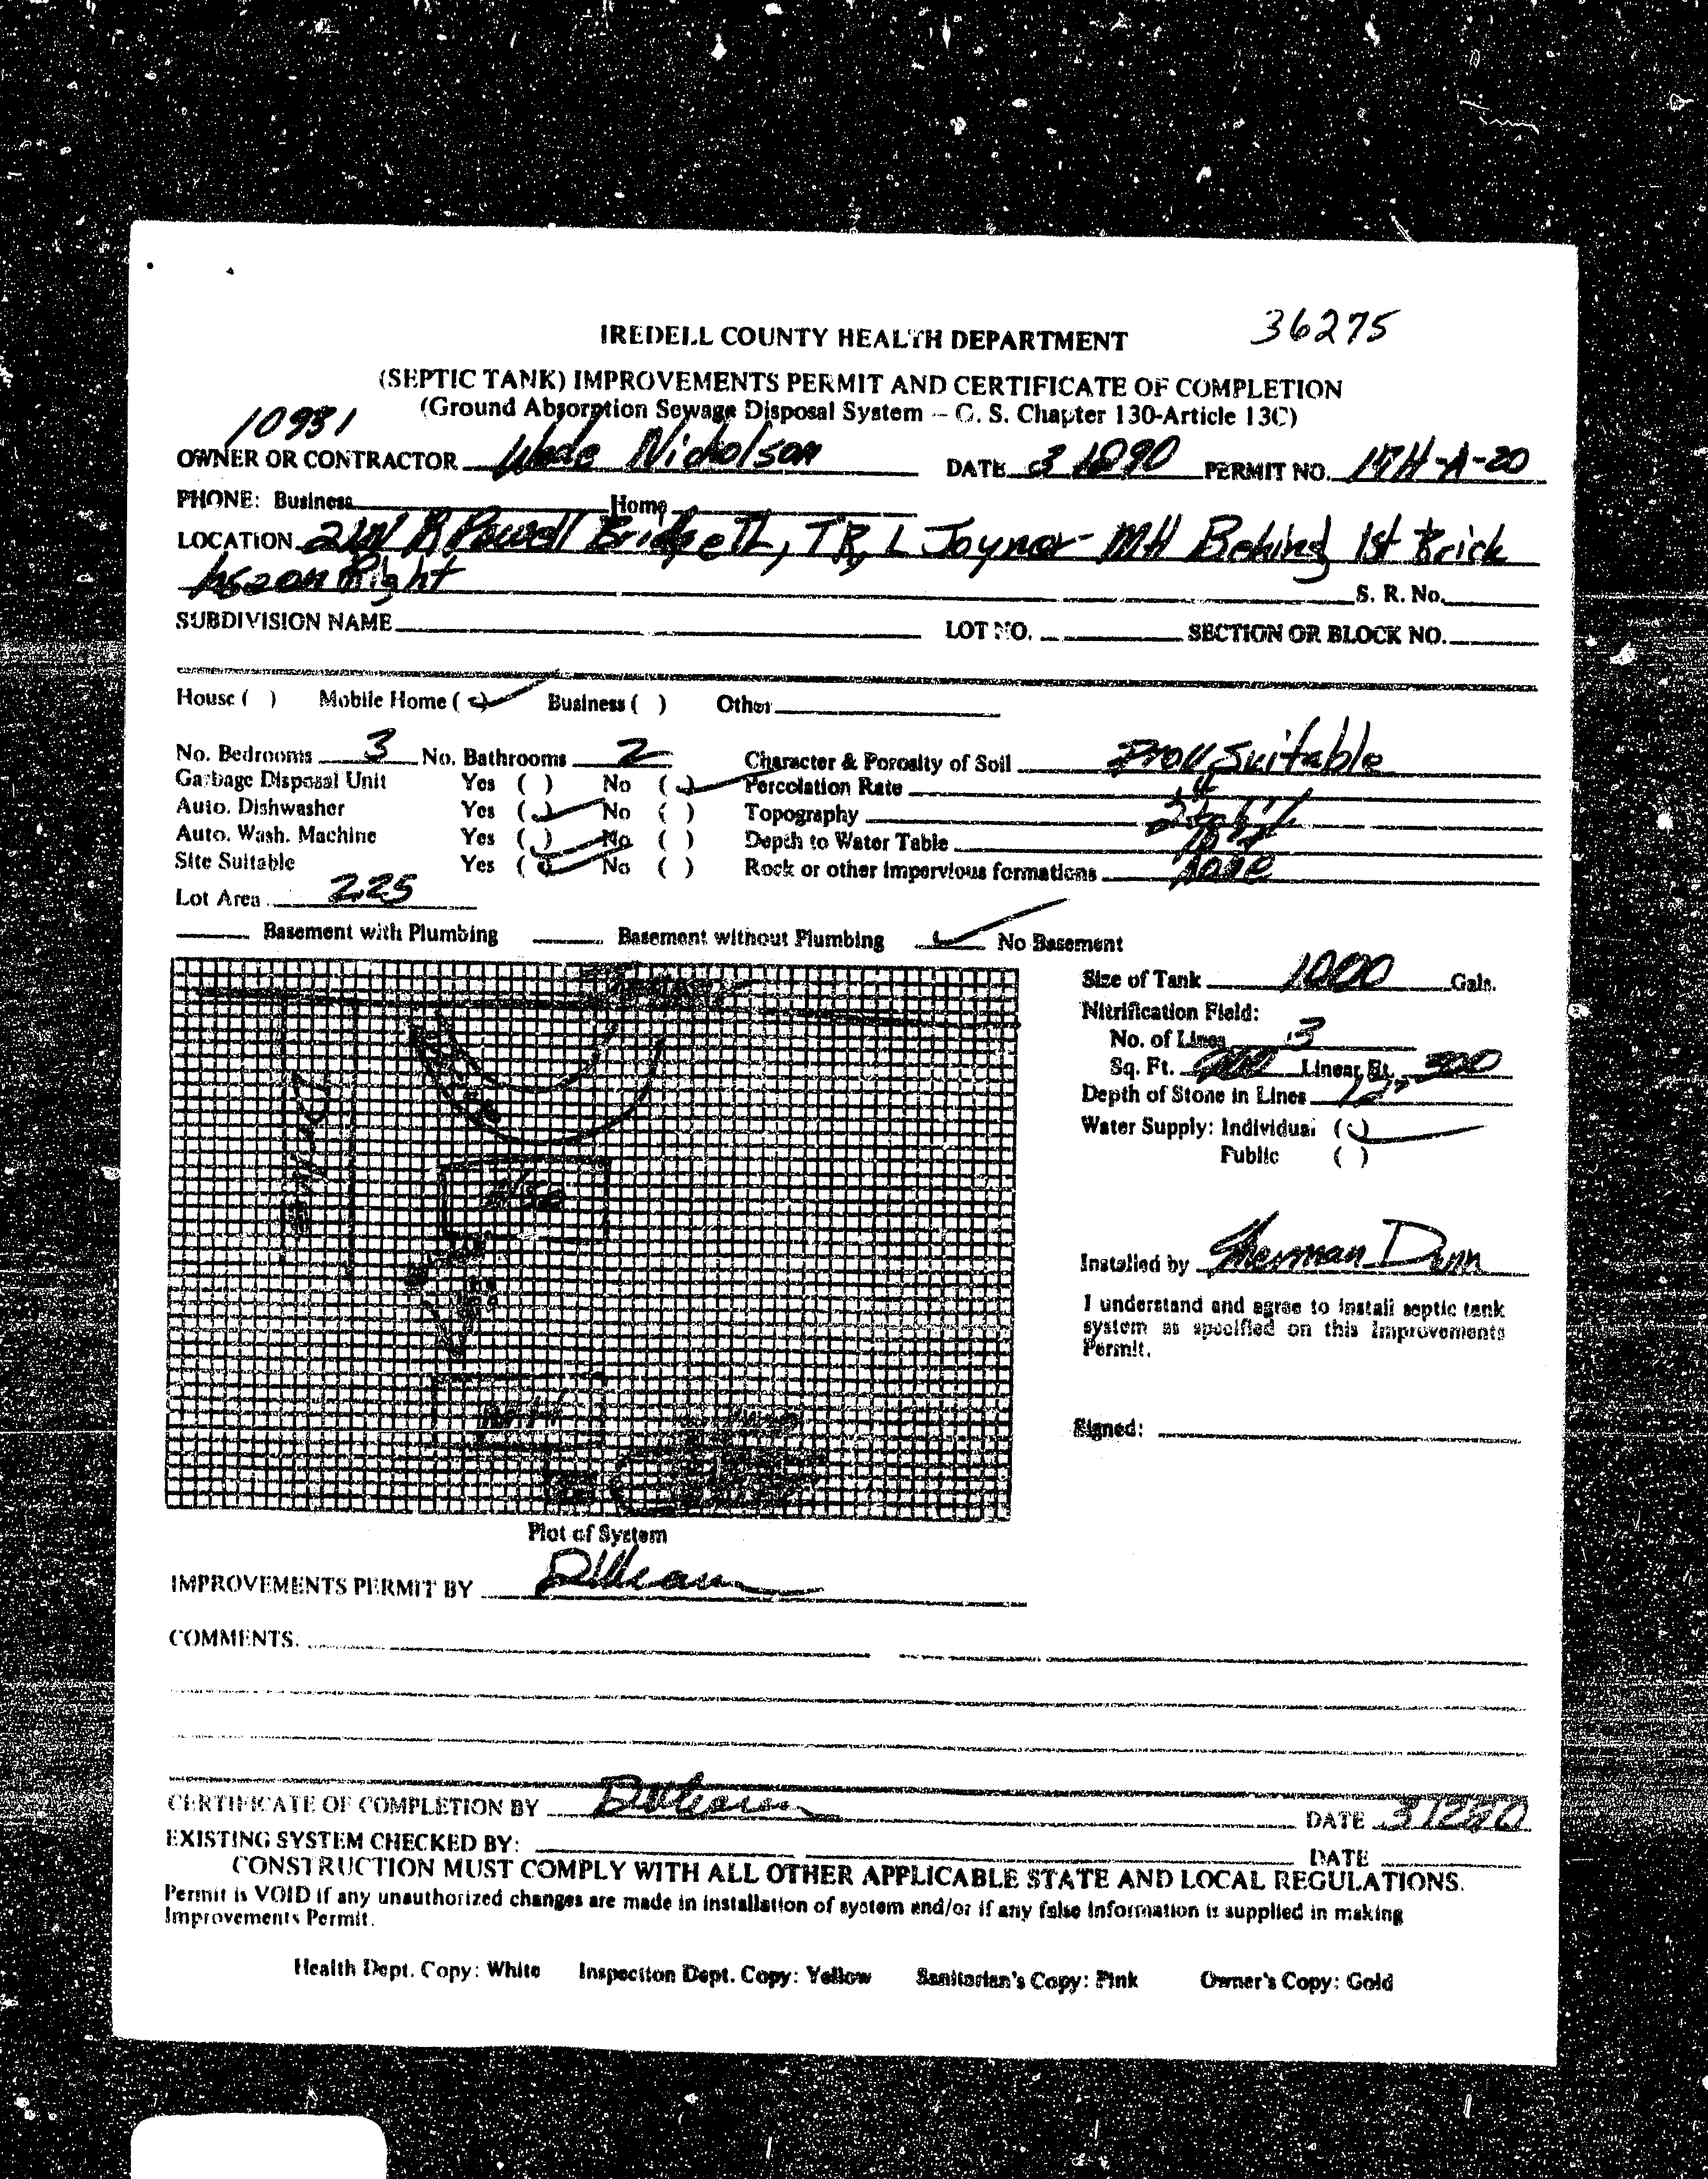 36275
IREDELL COUNTY HEALTH DEPARTMENT
(SEPTIC TANK) IMPROVEMENTS PERMIT AND CERTIFICATE OF COMPLETION
(Ground Absorption Sewage Disposal System – G. S. Chapter 130-Article 13C)
10931
OWNER OR CONTRACTOR Wade Nicholson DATE PERMIT NO. 17H-A-20
PHONE: Business Home
LOCATION R Powell Bridge TL, TR, L Joyner MH Behind 1st Brick
hse on Right S. R. No.
SUBDIVISION NAME LOT NO. SECTION OR BLOCK NO.
House ( ) Mobile Home (✓) Business ( ) Other
No. Bedrooms 3 No. Bathrooms 2 Character & Porosity of Soil Prov Suitable
Garbage Disposal Unit Yes ( ) No (✓) Percolation Rate
Auto. Dishwasher Yes (✓) No ( ) Topography
Auto. Wash. Machine Yes (✓) No ( ) Depth to Water Table
Site Suitable Yes (✓) No ( ) Rock or other impervious formations none
Lot Area 225
Basement with Plumbing Basement without Plumbing ✓ No Basement
Size of Tank 1000 Gals.
Nitrification Field:
No. of Lines 3
Sq. Ft. 900 Linear Ft. 300
Depth of Stone in Lines 12"
Water Supply: Individual (✓)
Public ( )
Installed by Sherman Dunn
I understand and agree to install septic tank
system as specified on this Improvements
Permit.
Signed:
Plot of System
IMPROVEMENTS PERMIT BY
COMMENTS:
CERTIFICATE OF COMPLETION BY DATE 31290
EXISTING SYSTEM CHECKED BY: DATE
CONSTRUCTION MUST COMPLY WITH ALL OTHER APPLICABLE STATE AND LOCAL REGULATIONS.
Permit is VOID if any unauthorized changes are made in installation of system and/or if any false information is supplied in making
Improvements Permit.
Health Dept. Copy: White Inspection Dept. Copy: Yellow Sanitarian's Copy: Pink Owner's Copy: Gold